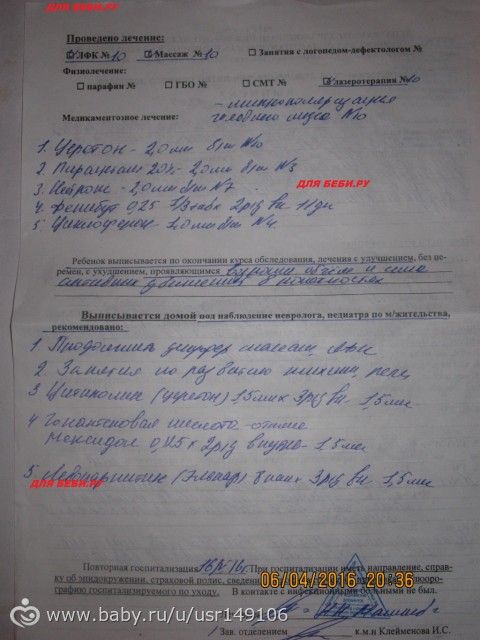 ДЛЯ БЕБИ.РУ
Проведено лечение:
☑ ЛФК № 10 ☑ Массаж № 10 ☐ Занятия с логопедом-дефектологом №
Физиолечение:
☐ парафин № ☐ ГБО № ☐ СМТ № ☑ лазеротерапия № 10
головного мозга N10
Медикаментозное лечение:
1. Церетон - 2,0 мл в/м N10
2. Пирацетам 20% - 2,0 мл в/м N5
3. - 2,0 мл в/м N7
ДЛЯ БЕБИ.РУ
4. Фенибут 0,25 1/3 табл 2 р/д вн 11 дн
5. Циклоферон - 1,0 мл в/м N4.
Ребенок выписывается по окончании курса обследования, лечения с улучшением, без пе-
ремен, с ухудшением, проявляющимся объём и сила
активных движений в конечностях
Выписывается домой под наблюдение невролога, педиатра по м/жительства,
рекомендовано:
1. массаж, ЛФК
2. Занятия по развитию речи
3 Цитиколин (церетон) 1,5 мл х 3 р/д вн - 1,5 мес
4 Гопантеновая кислота - отмена
Мексидол 0,125 х 2 р/д внутрь - 1,5 мес
5. Левокарнитин (Элькар) 8 кап х 3 р/д вн - 1,5 мес
ДЛЯ БЕБИ.РУ
Повторная госпитализация При госпитализации иметь направление, справ-
ку об эпидокружении, страховой полис,
графию госпитализируемого по уходу. В контакте с инфекционными больными не был.
06/04/2016 20:36
Зав. отделением к.м.н Клейменова И.С.
www.baby.ru/u/usr149106